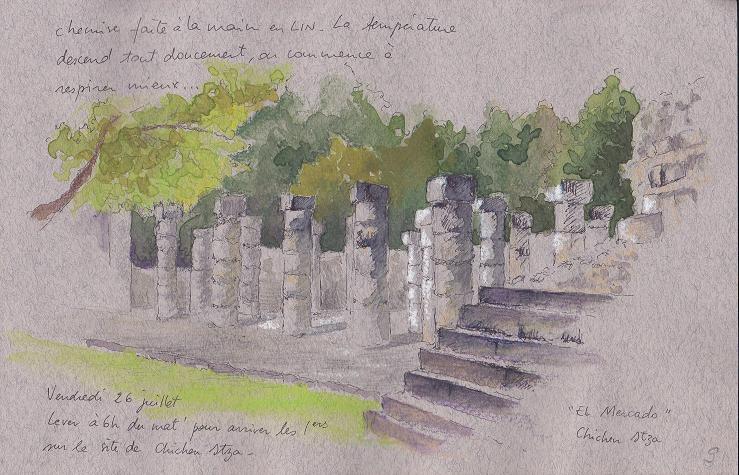 chemise faite à la main en LIN_ La température
descend tout doucement, on commence à
respirer mieux...
Vendredi 26 juillet
Lever à 6h du mat' pour arriver les 1ers
sur le site de Chichen Itza_
"EL Mercado"
Chichen Itza